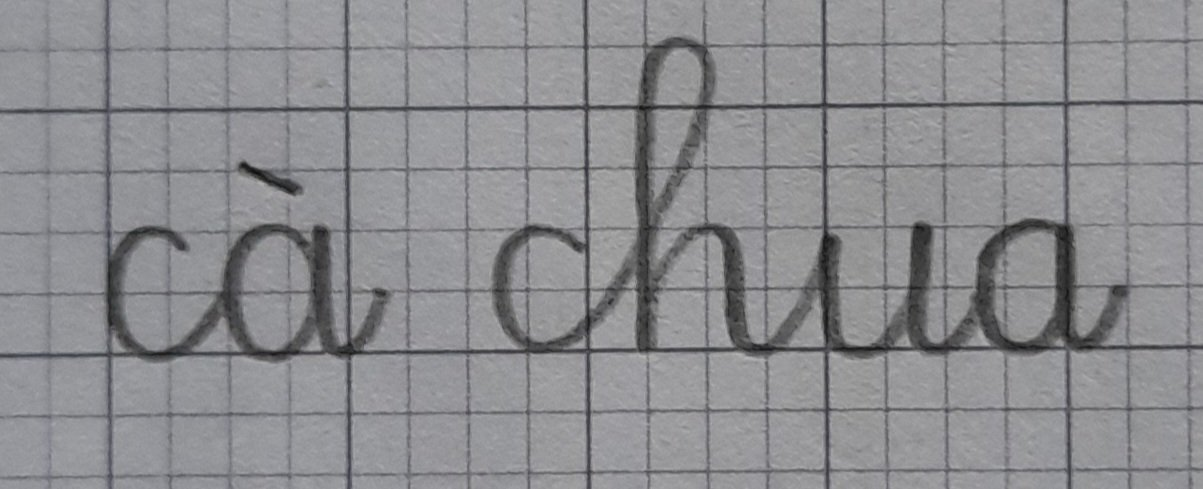 cà chua